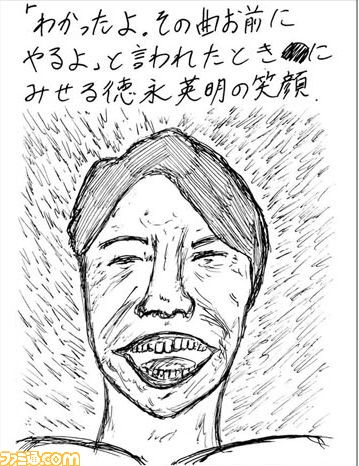 「わかったよ。その曲お前に
やるよ」と言われたときに
みせる徳永英明の笑顔.
ファミ通.com